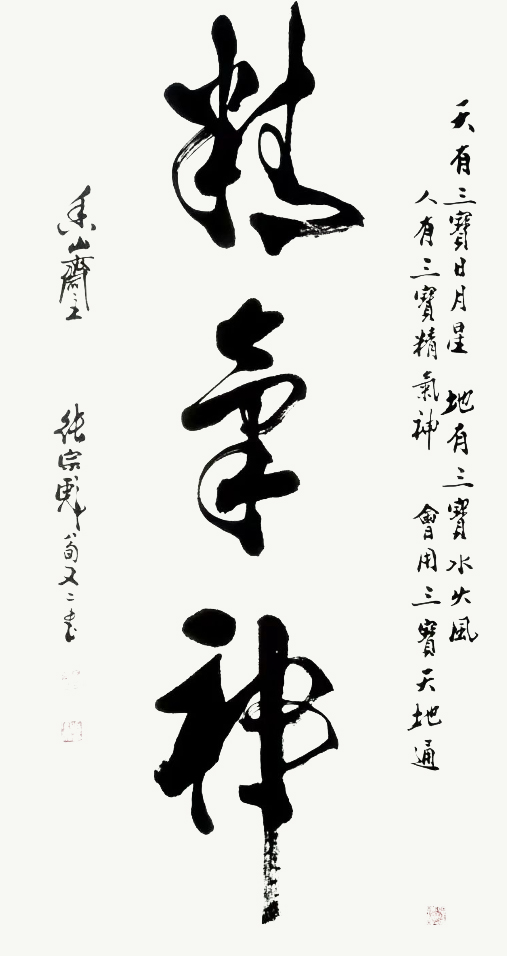 天有三寶日月星 地有三寶水火風
人有三寶精氣神 會用三寶天地通
精氣神
香山齋主
張宗彪